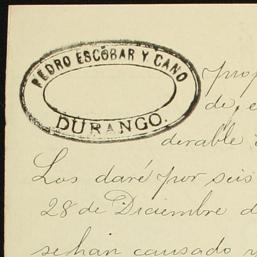 PEDRO ESCOBAR Y CANO
DURANGO.
de, e
derable
Los daré por seis
28 de Diciembre d
se han causado y